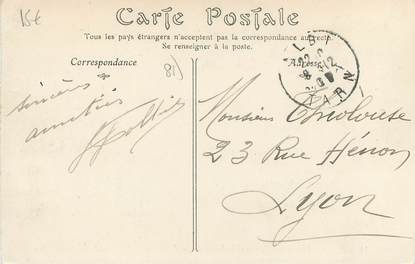 15€
Carte Postale
Tous les pays étrangers n'acceptent pas la correspondance au recto.
Se renseigner à la poste.
Correspondance
Adresse
ALBI
TARN
81)
sincères
amitiés
Monsieur
23 Rue Hénon
Lyon